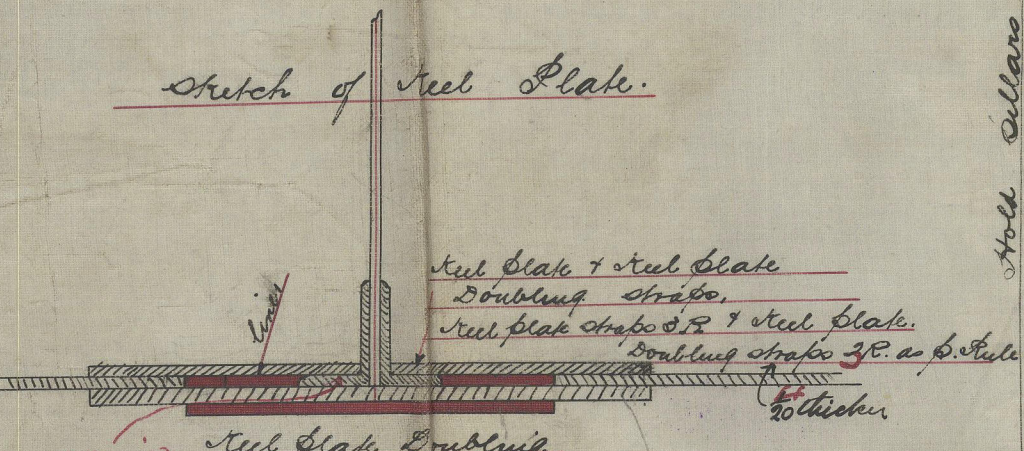 Sketch of Keel Plate.
Keel plate & Keel plate
Doubling straps.
Keel plate straps 3 R. & Keel plate.
Doubling straps 3 R. as p. Rule
liner
20 thicker
Keel plate Doubling
Hold Pillars